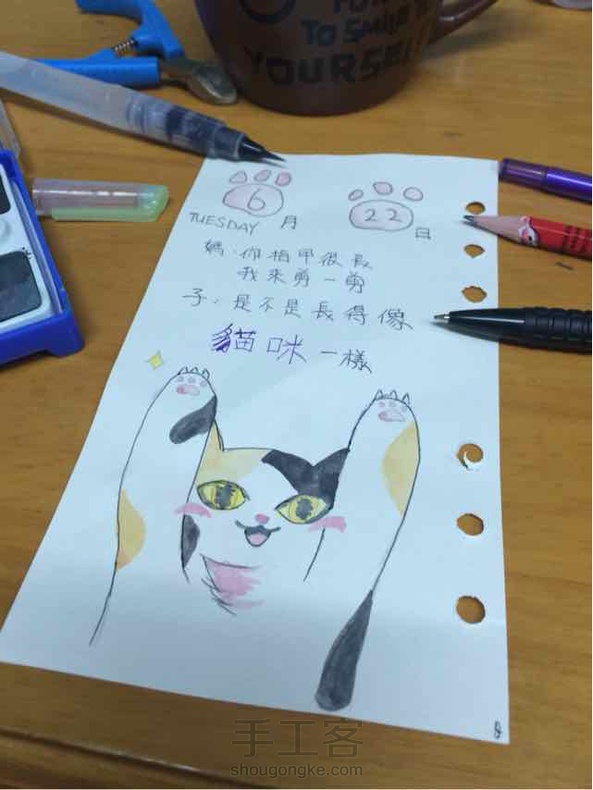 TO SMILE
YOURSELF
6 22
TUESDAY 月 日
媽:你指甲很長
我來剪一剪
子:是不是長得像
貓咪一樣
手工客
shougongke.com